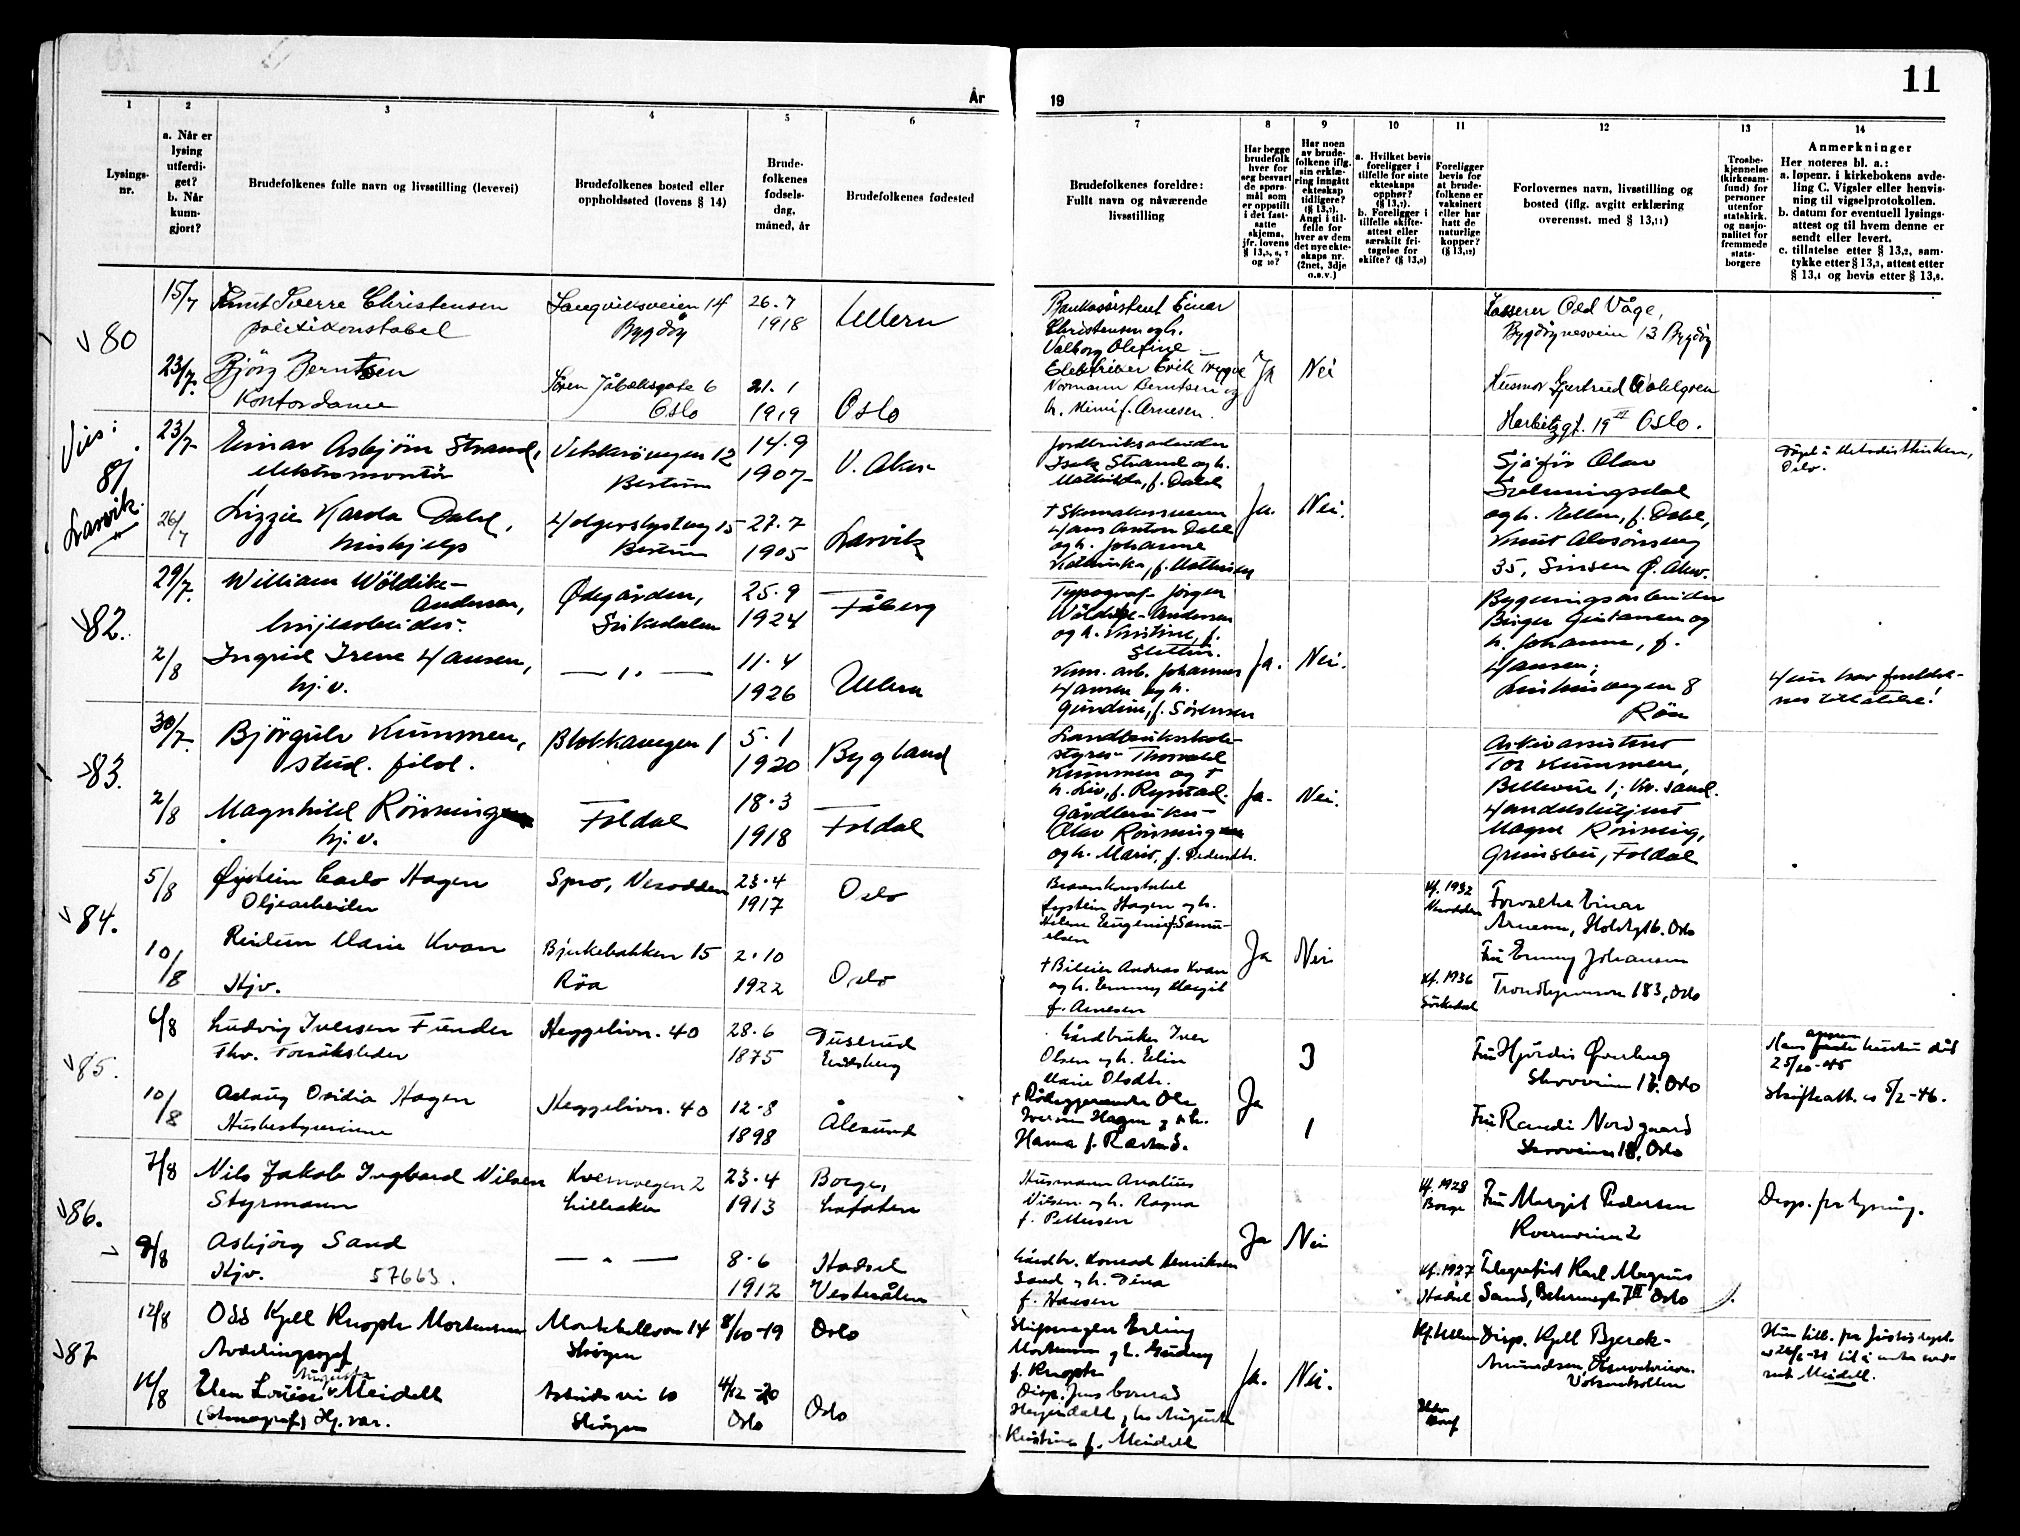 11
År
19
1
2
3
4
5
6
7
8
9
10
11
12
13
14
Lysings-
nr.
a. Når er
lysing
utferdi-
get?
b. Når
kunn-
gjort?
Brudefolkenes fulle navn og livsstilling (levevei)
Brudefolkenes bosted eller
oppholdssted (lovens § 14)
Brude-
folkenes
fødsels-
dag,
måned, år
Brudefolkenes fødested
Brudefolkenes foreldre:
Fullt navn og nåværende
livsstilling
Har begge
brudefolk
hver for
seg besvart
de spørs-
mål som
er oppstilt
i det fast-
satte
skjema,
jfr. lovens
og 10?
Har noen
av brude-
folkene iflg.
sin erklæ-
ring inngått
ekteskap
tidligere?
Angi i til-
felle for
hver av dem
det nye ekte-
skaps nr.
(2net, 3dje
o.s.v.)
a. Hvilket bevis
foreligger i
tilfelle for siste
ekteskaps
opphør?
b. Foreligger i
tilfelle skifte-
attest eller
særskilt fri-
tagelse for
skifte?
Foreligger
bevis for
at brude-
folkene er
vaksinert
eller har
hatt de
naturlige
kopper?
Forlovernes navn, livsstilling og
bosted (iflg. avgitt erklæring
overensst. med § 13,11)
Trosbe-
kjennelse
(kirkesam-
fund) for
personer
utenfor
statskirk.
og nasjo-
nalitet for
fremmede
stats-
borgere
Anmerkninger
Her noteres bl. a.:
a. løpenr. i kirkebokens avde-
ling C. Vigsler eller henvis-
ning til vigselprotokollen.
b. datum for eventuell lysings-
attest og til hvem denne er
sendt eller levert.
c. tillatelse etter § 13,2, sam-
tykke etter § 13,3, attest etter
§ 13,4 og bevis etter § 13,8.
80
15/7
Knut Sverre Christensen
politikonstabel
Langviksveien 14
Bygdøy
26.7
1918
Ullern
Bankassistent Einar
Christensen og h.
Valborg Olefine
Kasserer Odd Våge,
Bygdøynesveien 13 Bygdøy
23/7
Bjørg Berntsen
Kontordame
Søren Jåbæksgate 6
Oslo
21.1
1919
Oslo
Elektriker Erik Trygve
Normann Berntsen og
h. Mimi f. Arnesen.
Ja
Nei
Husmor Gertrud Dahlgren
Herbitzgt. 19 II Oslo.
Vies:
81
Larvik.
23/7
Einar Asbjørn Strand,
elektromontør
Vekkerøvegen 12
Bestum
14.9
1907
V. Aker
Jordbruksarbeider
Isak Strand og h.
Mathilde, f. Dahl
Sjåfør Olav
og h. Ellen, f. Dahl,
Knut Alvsønsveg
35, Sinsen Ø. Aker.
Vigd i Metodistkirken,
Oslo.
26/7
Lizzie Harda Dahl,
hushjelp
Holgerslystveg 15
Bestum
27.7
1905
Larvik
† Skomakersvenn
Hans Anton Dahl
og h. Johanne
Ja.
Nei.
82.
29/7.
William Wöldike-
Andersen,
linjearbeider.
Ødegården,
Sørkedalen
25.9
1924
Fåberg
Typograf Jørgen
Wöldike-Andersen
og h. Kristine, f.
Bygningsarbeider
Birger Gustavsen og
h. Johanne, f.
Hansen;
8
Røa
2/8
Ingrid Irene Hansen,
hj.v.
— " —
11.4
1926
Ullern
Kom. arb. Johannes
Hansen og h.
Gundine, f. Sørensen
Ja.
Nei.
Hun har foreldre-
nes tillatelse!
83.
30/7.
Bjørgulv Kummen,
stud. filol.
Blokkavegen 1
5.1
1920
Bygland
Landbruksskole-
styrer Thorvald
Kummen og †
h. Liv, f. Rystad.
Arkivassistent
Tor Kummen,
Bellevue 1, Kr. sand.
2/8
Magnhild Rønningen
hj.v.
Foldal
18.3
1918
Foldal
Gårdbruker
Olav Rønningen
og h. Marit, f. Pedersdtr.
Ja.
Nei.
Handelsbetjent
Magne Rønning,
Grimsbu, Foldal
84.
5/8
Øystein Carlo Hagen
Oljearbeider
Spro, Nesodden
23.4
1917
Oslo
Brannkonstabel
Øystein Hagen og h.
Helene Eugenie f. Samu-
elsen
Kf. 1932
Nesodden
Forvalter Einar
Arnesen, Holstgt 6. Oslo
10/8
Reidun Marie Kvan
Hjv.
Bjerkebakken 15
Røa
2.10
1922
Oslo
† Bileier Andreas Kvan
og h. Emmy Margit
f. Arnesen
Ja
Nei
Kf. 1936
Sørkedal
Fru Emmy Johansen
Trondheimsvn 183, Oslo
85.
6/8
Ludvig Iversen Funder
Fhv. Forsøksleder
Heggelivn. 40
28.6
1875
Eidsberg
Gårdbruker Iver
Olsen og h. Elin
Marie Olsdtr.
3
Fru Hjørdis Øverbug
18. Oslo
25/10-45
Skifteatt. av 5/2-46.
10/8
Aslaug Osidia Hagen
Husbestyrerinne
Heggelivn. 40
12.8
1898
Ålesund
Iversen Hagen og h.
Hanna f. Ravnå.
Ja
1
Fru Randi Nordgaard
18. Oslo
86.
7/8
Nils Jakob Ingbard Nilsen
Styrmann
Kvernvegen 2
Lilleaker
23.4
1913
Borge,
Lofoten
Husmann Analius
Nilsen og h. Ragna
f. Pettersen
Kf. 1928
Borge
Fru Margit Pedersen
Kvernveien 2
Disp. fra lysning.
9/8
Asbjørg Sand
Hjv.
57663.
— " —
8.6
1912
Hadsel
Vesterålen
Gårdbr. Konrad Henriksen
Sand og h. Dina
f. Hansen
Ja
Nei
Kf. 1927
Hadsel
Telegrafist Karl Magnus
Sand, Behrensgt. 7 II Oslo
87
12/8
Odd Kjell Knoph Mortensen
Avdelingssjef
Montebelloen 14
Skøyen
8/10-19
Oslo
Skipsmegler Erling
Mortensen og h. Gudny
f. Knoph
Kf. Ullern
Disp. Kjell Bjerck-
Amundsen,
Voksenkollen
14/8
Elen Louise Augusta Meidell
(Stenograf) Hj.vær.
Arbinds vei 10
Skøyen
4/12-20
Oslo
Oslo
Disp. Jens Conrad
og h. Augusta
Kristine f. Meidell
Ja.
Nei.
Meidell.